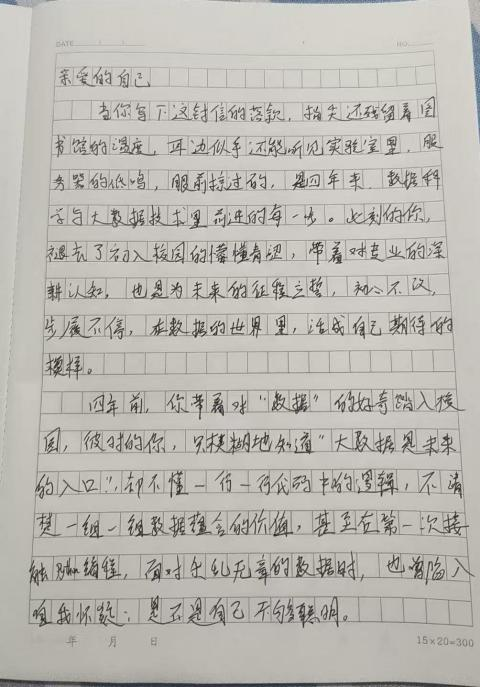 DATE / /
NO.
亲爱的自己
当你写下这封信的落款，指尖还残留着图
书馆的温度，耳边似乎还能听见实验室里，服
务器的低鸣，眼前掠过的，是四年来，数据科
学与大数据技术里前进的每一步。此刻的你，
褪去了初入校园的懵懂青涩，带着对专业的深
耕认知，也是为未来的征程立誓，初心不改，
步履不停，在数据的世界里，活成自己期待的
模样。
四年前，你带着对"数据"的好奇踏入校
园，彼时的你，只模糊地知道"大数据是未来
的入口"，却不懂一行一行代码中的逻辑，不清
楚一组一组数据蕴含的价值，甚至在第一次接
触Python编程，面对杂乱无章的数据时，也曾陷入
自我怀疑：是不是自己不够聪明。
年 月 日
15×20=300